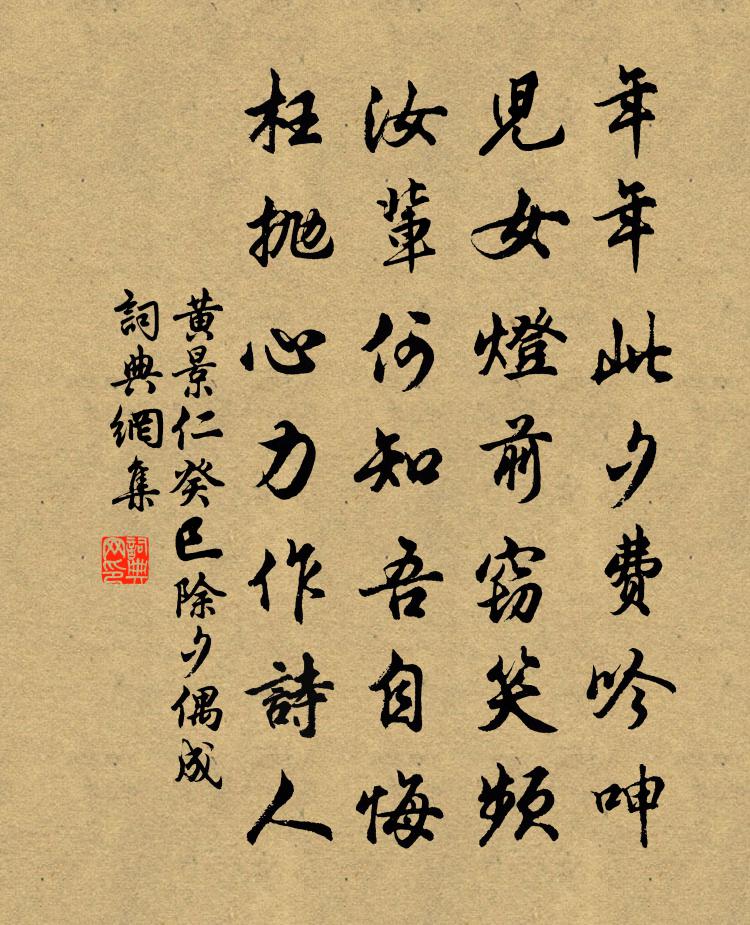 年年此夕費吟呻
兒女燈前窃笑頻
汝輩何知吾自悔
枉抛心力作詩人
黄景仁癸巳除夕偶成
詞典網集
詞典网印